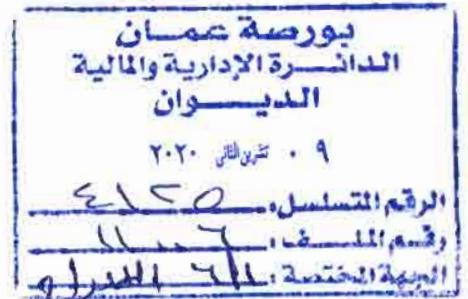 بورصة عمـــان
الدائـــرة الإدارية والمالية
الديـــوان
٠٩ تشرين الثاني ٢٠٢٠
الرقم المتسلسل: ٤١٢٥
رقم الملـــف:
الجهة المختصة: